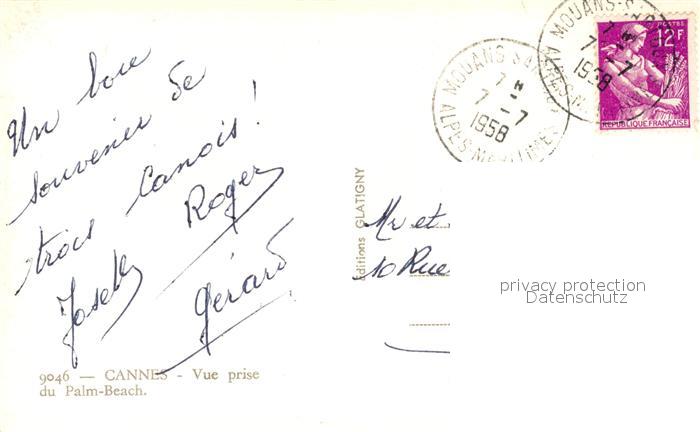 Un bon
souvenir de
trois Canois !
Joseph Roger
Gérard
9046 — CANNES - Vue prise
du Palm-Beach.
Éditions GLATIGNY
Mr et
10 Rue
privacy protection
Datenschutz
MOUANS SAR
7 H
7 - 7
1958
ALPES-MARITIMES
MOUANS-SAR
7 H
7 - 7
1958
ALPES-M
POSTES
12F
REPUBLIQUE FRANÇAISE